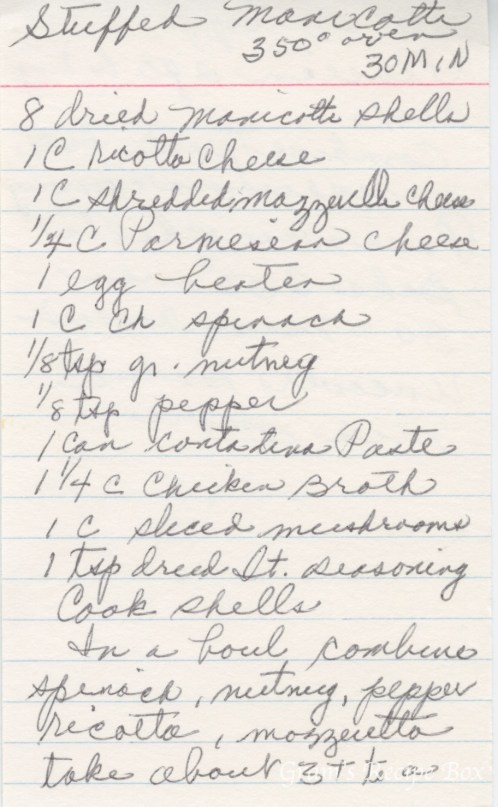 Stuffed Manicotti
350° oven
30 MIN
8 dried Manicotti shells
1 C ricotta Cheese
1 C shredded mozzerella cheese
1/4 C Parmesean cheese
1 egg beaten
1 C Ch spinach
1/8 tsp gr. nutmeg
1/8 tsp pepper
1 can contadina Paste
1 1/4 C Chicken Broth
1 C sliced mushrooms
1 Tsp dried It. seasoning
Cook shells
In a bowl combine
spinach, nutmeg, pepper
ricotta, mozzeretta
take about 3 T
Gram's Recipe Box